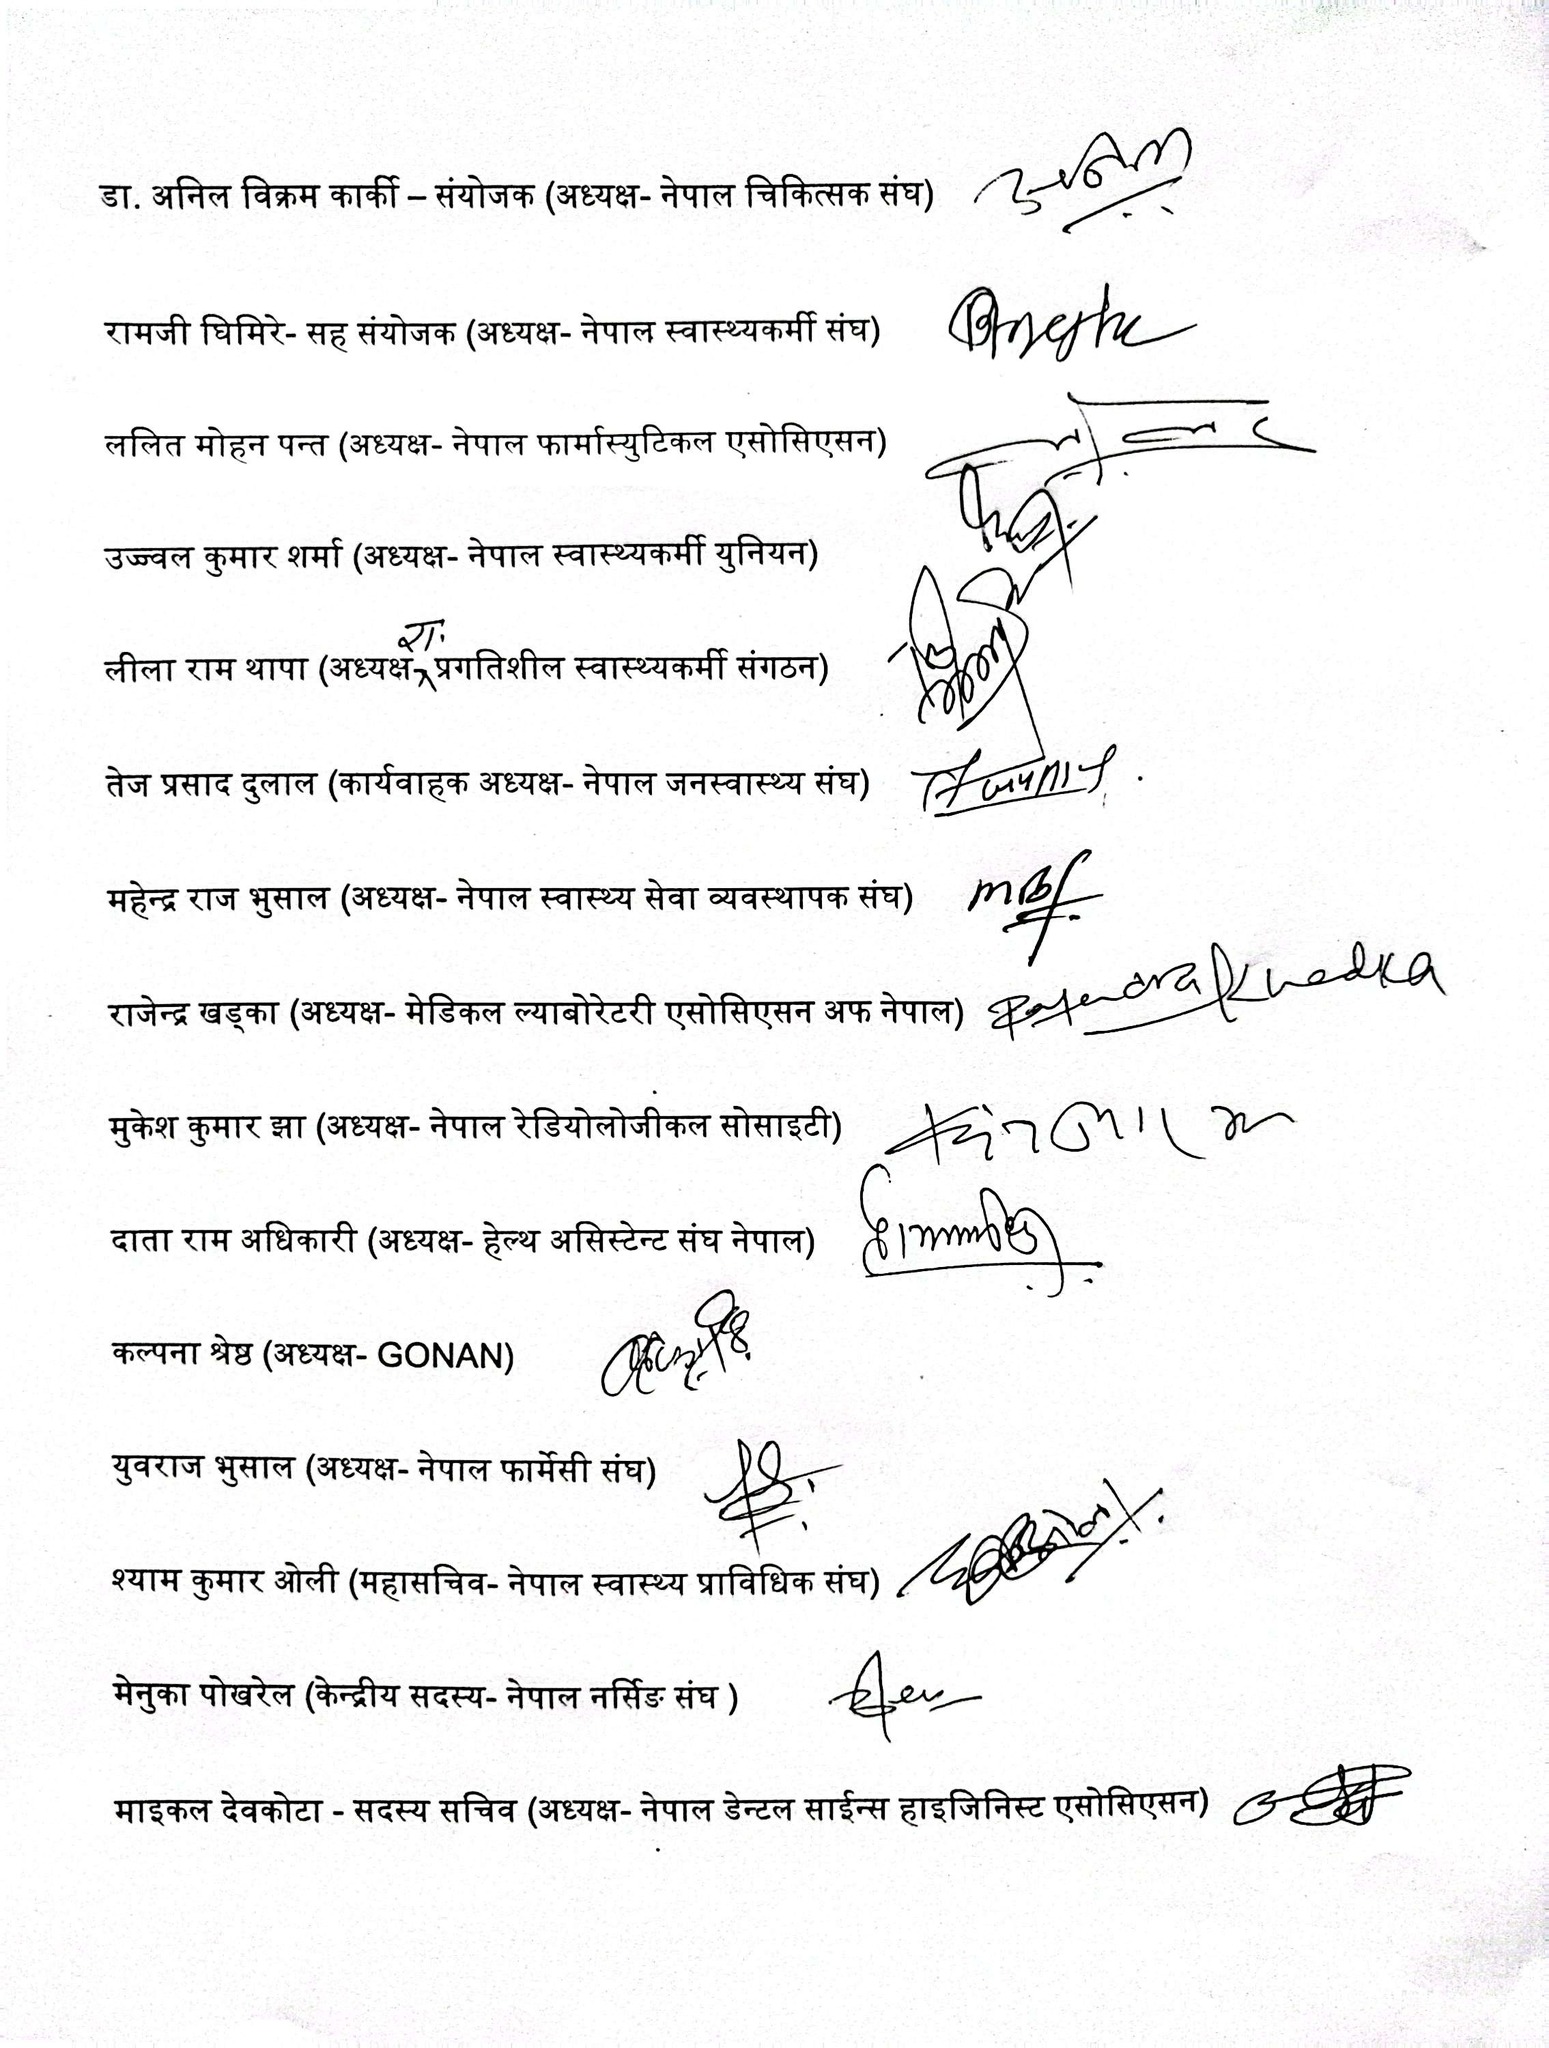 डा. अनिल विक्रम कार्की – संयोजक (अध्यक्ष- नेपाल चिकित्सक संघ)
रामजी घिमिरे- सह संयोजक (अध्यक्ष- नेपाल स्वास्थ्यकर्मी संघ)
ललित मोहन पन्त (अध्यक्ष- नेपाल फार्मास्युटिकल एसोसिएसन)
उज्ज्वल कुमार शर्मा (अध्यक्ष- नेपाल स्वास्थ्यकर्मी युनियन)
रा.
लीला राम थापा (अध्यक्ष- प्रगतिशील स्वास्थ्यकर्मी संगठन)
तेज प्रसाद दुलाल (कार्यवाहक अध्यक्ष- नेपाल जनस्वास्थ्य संघ)
महेन्द्र राज भुसाल (अध्यक्ष- नेपाल स्वास्थ्य सेवा व्यवस्थापक संघ)
राजेन्द्र खड्का (अध्यक्ष- मेडिकल ल्याबोरेटरी एसोसिएसन अफ नेपाल) Rajendra Khadka
मुकेश कुमार झा (अध्यक्ष- नेपाल रेडियोलोजीकल सोसाइटी)
दाता राम अधिकारी (अध्यक्ष- हेल्थ असिस्टेन्ट संघ नेपाल)
कल्पना श्रेष्ठ (अध्यक्ष- GONAN)
युवराज भुसाल (अध्यक्ष- नेपाल फार्मेसी संघ)
श्याम कुमार ओली (महासचिव- नेपाल स्वास्थ्य प्राविधिक संघ)
मेनुका पोखरेल (केन्द्रीय सदस्य- नेपाल नर्सिङ संघ )
माइकल देवकोटा - सदस्य सचिव (अध्यक्ष- नेपाल डेन्टल साईन्स हाइजिनिस्ट एसोसिएसन)